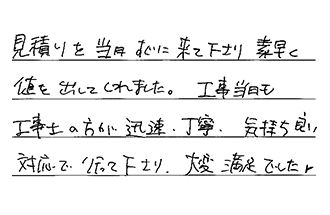 見積りを当日すぐに来て下さり素早く
値を出してくれました。工事当日も
工事士の方が迅速、丁寧、気持ち良い
対応で行って下さり、大変満足でした。